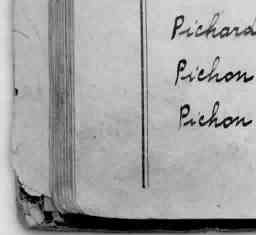 Pichard
Pichon
Pichon